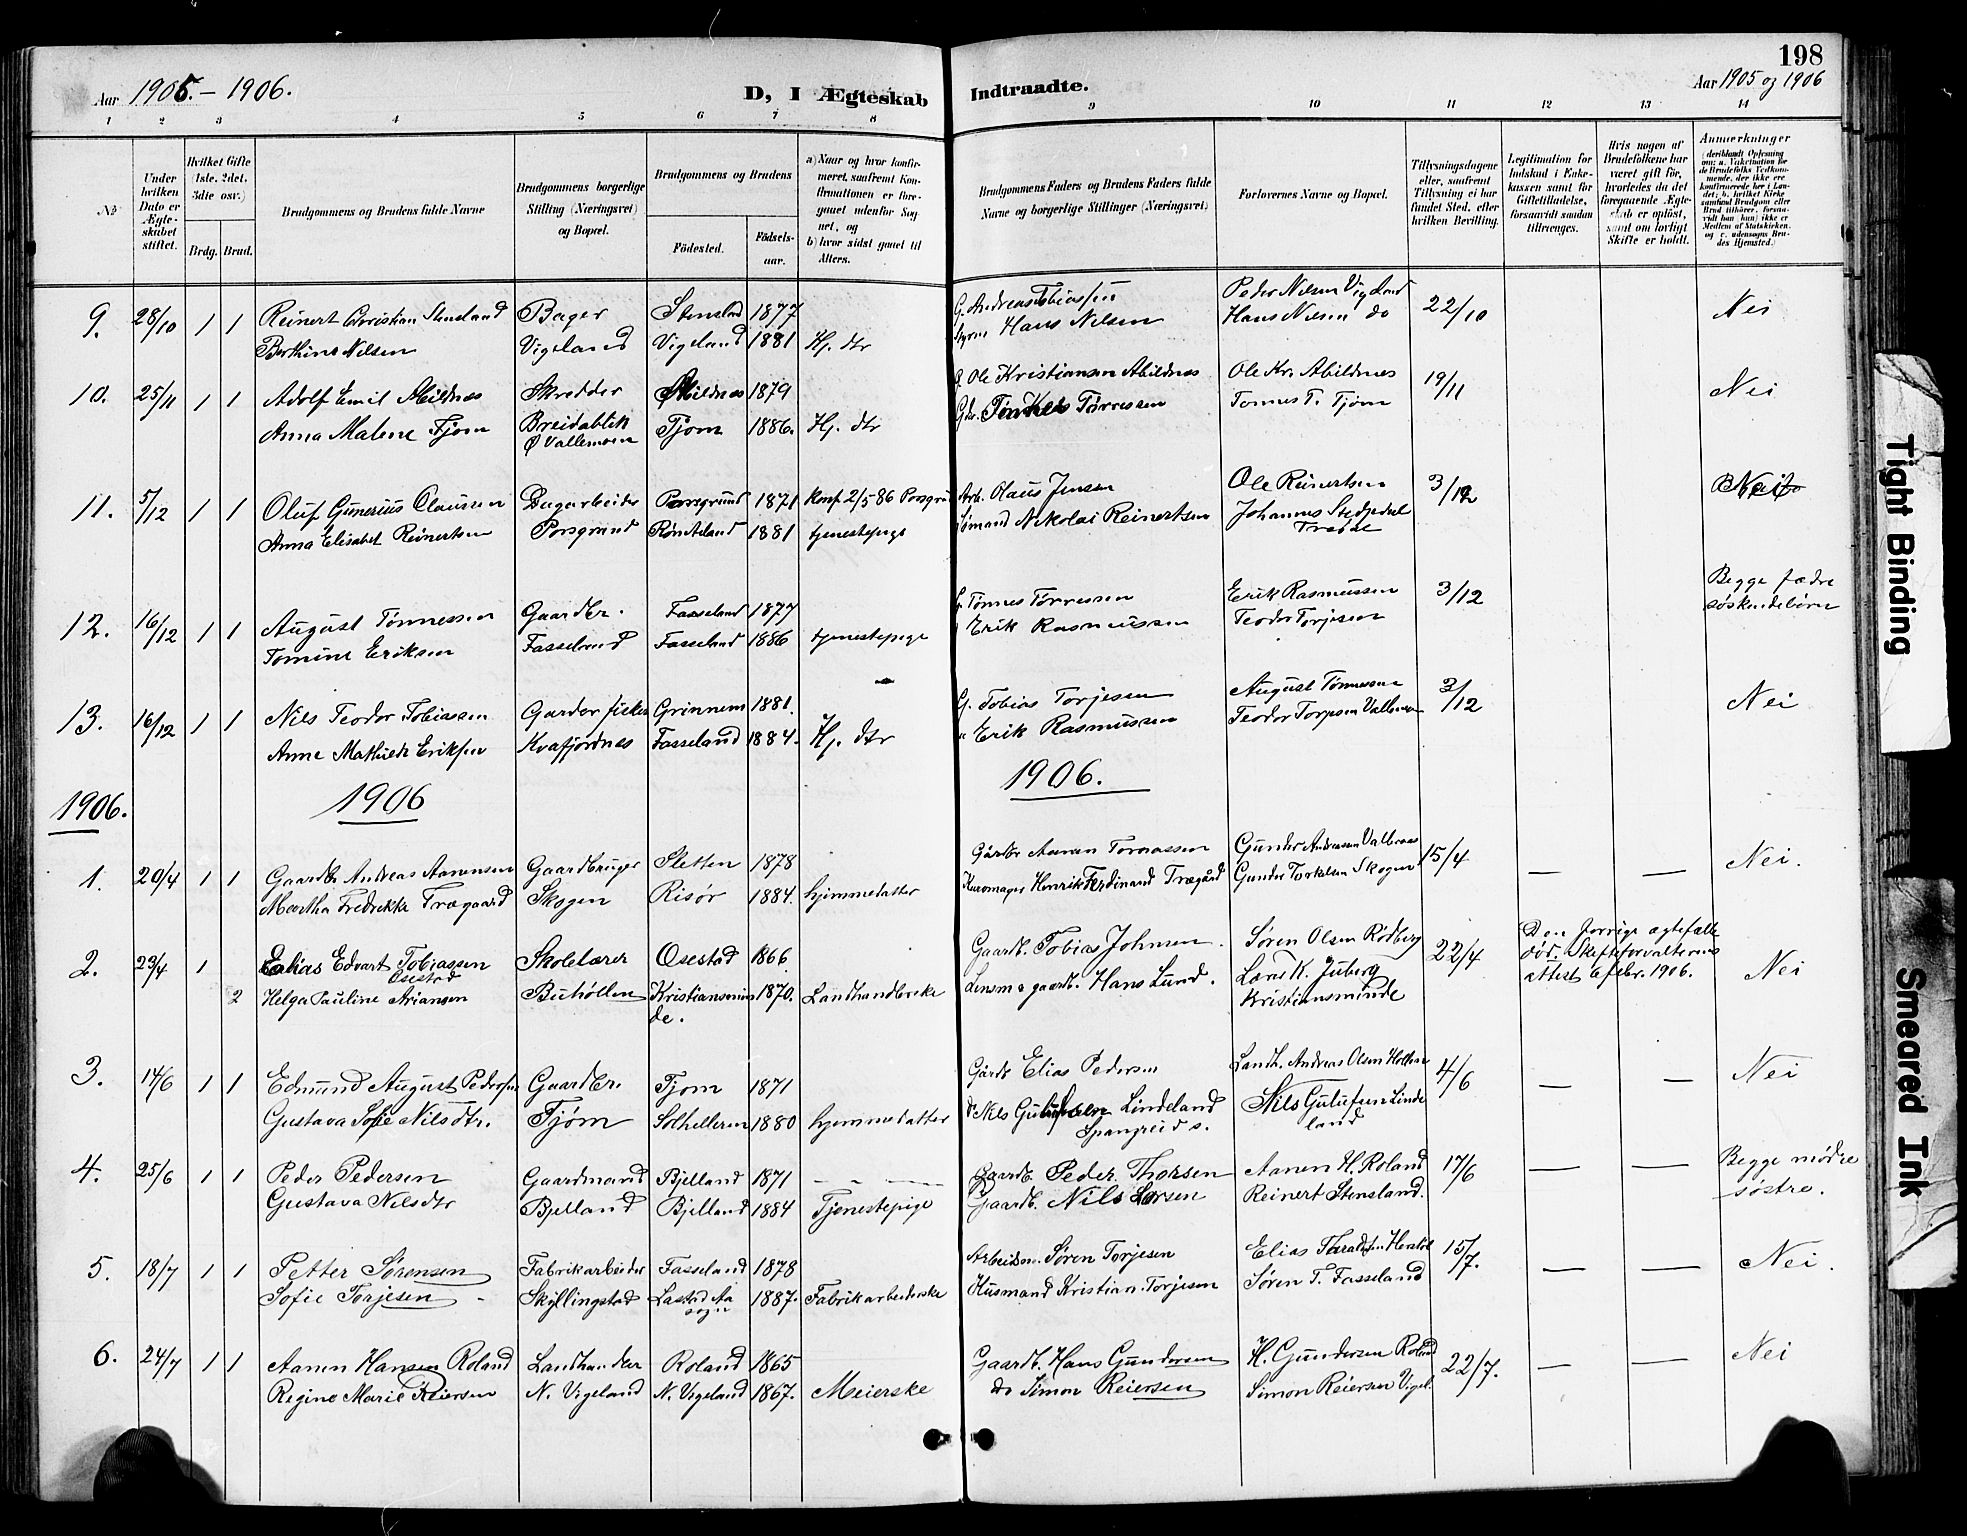 198
Aar 1905.-1906.
D, I Ægteskab
Indtraadte.
Aar 1905 og 1906
1 2 3 4 5 6 7 8
9 10 11 12 13 14
No
Under hvilken Dato er Ægteskabet stiftet.
Hvilket Gifte (1ste, 2det, 3die osv.)
Brdg. Brud.
Brudgommens og Brudens fulde Navne
Brudgommens borgerlige Stilling (Næringsvei) og Bopæl.
Brudgommens og Brudens
Födested.
Födsels-aar.
a) Naar og hvor konfirmeret, saafremt Konfirmationen er foregaaet udenfor Sognet, og
b) hvor sidst gaaet til Alters.
Brudgommens Faders og Brudens Faders fulde Navne og borgerlige Stillinger (Næringsvei)
Forlovernes Navne og Bopæl.
Tillysningsdagene eller, saafremt Tillysning ei har fundet Sted, efter hvilken Bevilling.
Legitimation for Indskud i Enkekassen samt for Giftetilladelse, forsaavidt saadan tiltrænges.
Hvis nogen af Brudefolkene har været gift för, hvorledes da det foregaaende Ægteskab er oplöst, samt om lovligt Skifte er holdt.
Anmærkninger
9. 28/10 1 1 Reinert Christian Stensland Bager Stensland 1877
Berthine Nilsen Vigeland Vigeland 1881 Hj. dtr
G. Andreas Tobiassen Peder Nilsen Vigeland 22/10 Nei
Hans Nilsen Hans Nilsen do
10. 25/11 1 1 Adolf Emil Abildnes Skredder Abildnes 1879
Anna Malene Tjom Breidablik Tjom 1886. Hj. dtr
Ø Vallemoen
G. Ole Kristiansen Abildnes Ole Kr. Abildnes 19/11 Nei
Tønnes Tørressen Tonnes T. Tjøm
11. 5/12 1 1 Oluf Gunerius Claussen Dagarbeider Porsgrund 1871 Konf 2/5 86 Porsgrun
Anna Elisabet Reinertsen Porsgrund 1881 tjenestepige
Arb. Olaus Jensen Ole Reinertsen 3/12 Nei
Sømand Nikolai Reinertsen Johannes
12. 16/12 1 1 August Tønnessen Gaardbr. Fasseland 1877
Tomine Eriksen Fasseland Fasseland 1886 tjenestepige
G. Tønnes Tørressen Erik Rasmussen 3/12 Begge fædre
" Erik Rasmussen Teodor Torjesen søskendebørn
13. 16/12 1 1 Nils Teodor Tobiassen Gardbr fisker Grinnem 1881.
Anne Mathilde Eriksen Kvafjordnes Fasseland 1884. Hj. dtr
G. Tobias Torjesen August Tønnessen 3/12 Nei
" Erik Rasmussen Teodor Torjesen Vallemoen
1906. 1906 1906.
1. 20/4 1 1 Gaardbr Andreas Aanensen Gaardbruger Sletten 1878
Martha Fredrikke Trægaard Skogen Risör 1884. hjemmedatter
Gårdbr Aanen Tomassen Gunder Andreasen Valbraas 15/4 — — Nei.
Kurvmager Henrik Ferdinand Trægård Gunder Torkelsen Skogen
2. 23/4 1 Elias Edvart Tobiassen Skolelærer Osestad 1866
Osestad
2 Helga Pauline Ariansen Buhöllen Kristiansminde. 1870. Landhandlerske
Gaardb. Tobias Johnsen. Søren Olsen Rødberg 22/4 Den forrige ægtefælle
Lensm. & gaardb. Hans Lund. Lars K. Juberg død. Skifteforvalterens Nei
Kristiansminde attest 6 febr. 1906.
3. 14/6 1 1 Edmund August Pedersen Gaardbr. Tjom 1871
Gustava Sofie Nilsdtr. Tjøm Solhelleren 1880 hjemmedatter
Gårdb Elias Pedersen Landh. Andreas Olsen Holthe 4/6 — — Nei
do Nils Gulufsen Lindeland Nils Gulufsen Linde
Spangreid s. land
4. 25/6 1 1 Peder Pedersen Gaardmand Bjelland 1871
Gustava Nilsdtr Bjelland Bjelland 1884 Tjenestepige
Gaardb. Peder Thorsen Aanen H. Roland 17/6 — — Begge mødre
Gaardb. Nils Larsen Reinert Stensland. søstre.
5. 18/7 1 1 Petter Sørensen Fabrikarbeider Fasseland 1878
Sofie Torjesen Skjllingstad Lastad Aa sogn 1887. Fabrikarbeiderske
Arbeidsm. Søren Torjesen Elias Taraldsen 15/7. — — Nei.
Husmand Kristian Torjesen Søren T. Fasseland
6. 24/7 1 1 Aanen Hansen Roland Landhandler Roland 1865
Regine Marie Reiersen N. Vigeland N. Vigeland 1867. Meierske
Gaardb. Hans Gundersen H. Gundersen Roland 22/7. — — Nei
do Simon Reiersen Simon Reiersen Vigel.
Tight Binding
Smeared Ink